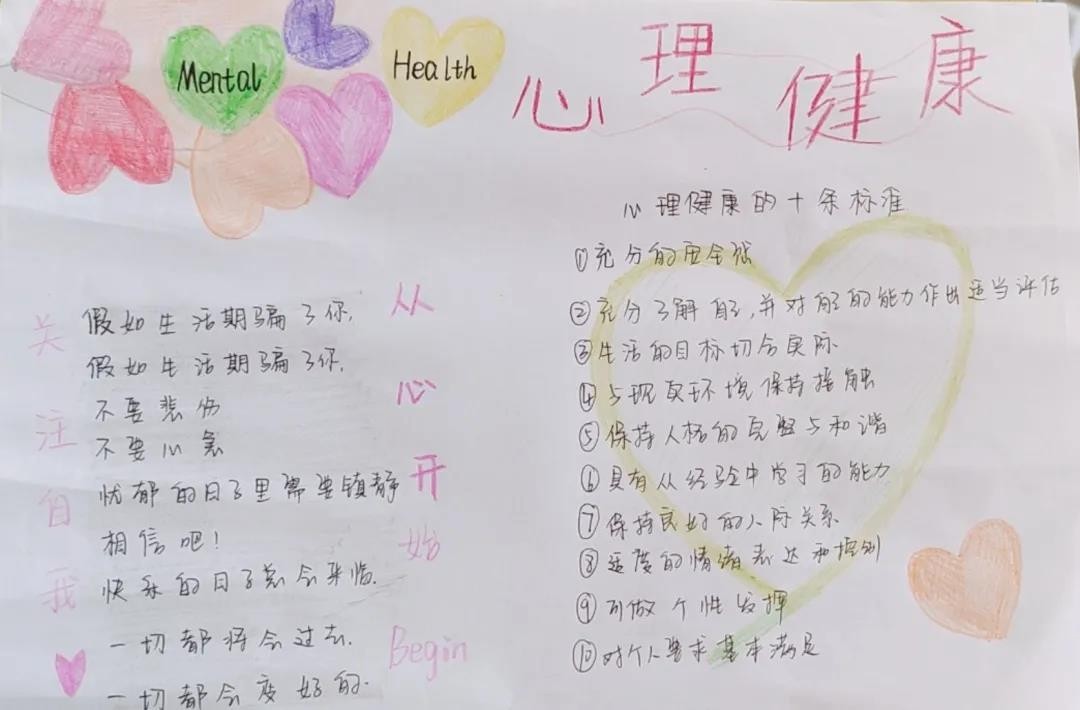 Mental Health
心理健康
关注自我
假如生活期骗了你,
假如生活期骗了你.
不要悲伤
不要心急
忧郁的日子里需要镇静
相信吧!
快乐的日子总会来临.
一切都将会过去.
一切都会变好的.
从心开始
Begin
心理健康的十条标准
①充分的安全感
②充分了解自己,并对自己的能力作出适当评估
③生活的目标切合实际
④与现实环境保持接触
⑤保持人格的完整与和谐
⑥具有从经验中学习的能力
⑦保持良好的人际关系
⑧适度的情绪表达和控制
⑨可做个性发挥
⑩对个人要求基本满足